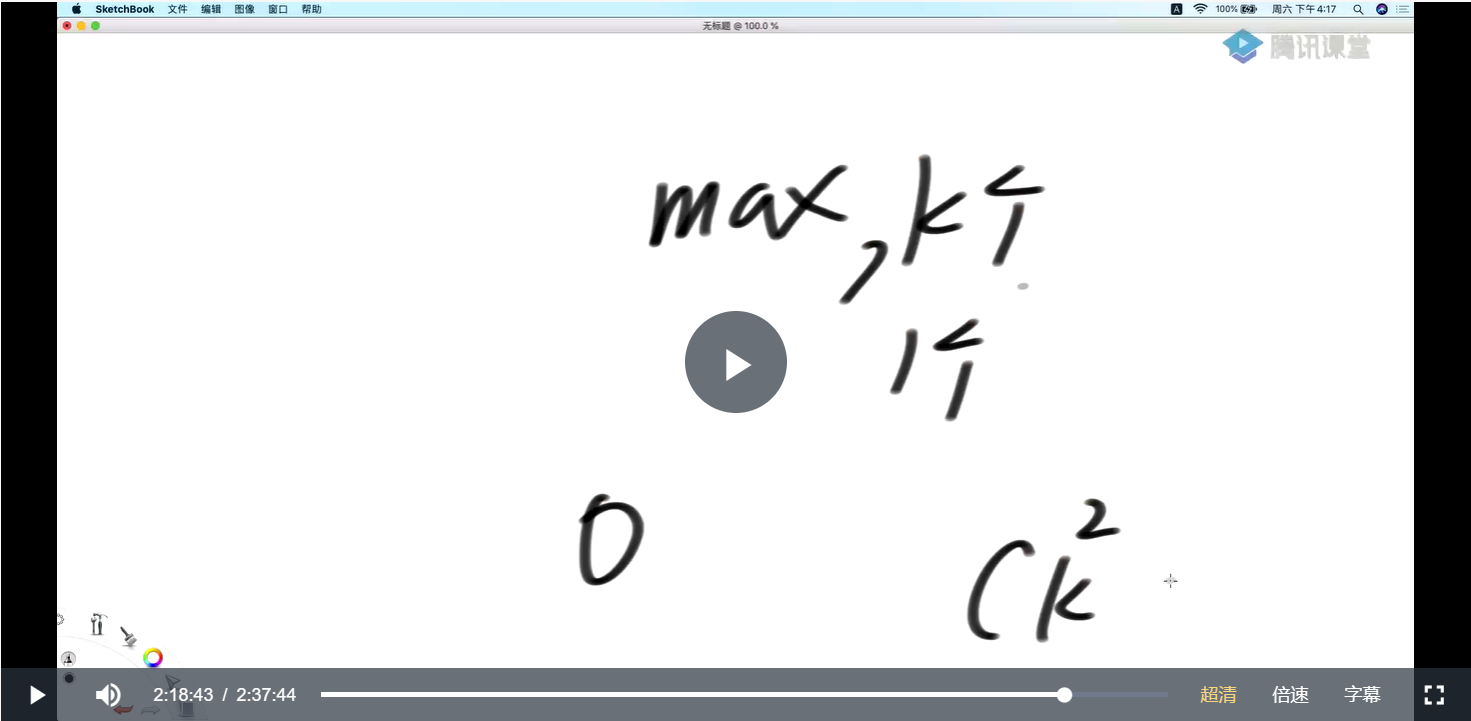 SketchBook 文件 编辑 图像 窗口 帮助 A 100% 周六 下午4:17
无标题 @ 100.0 %
腾讯课堂
max, k个
1个
0
Ck²
2:18:43 / 2:37:44 超清 倍速 字幕